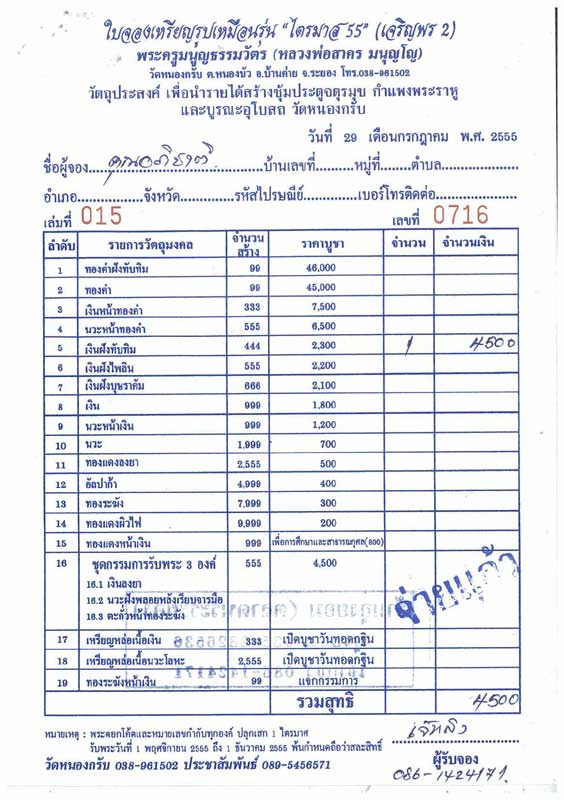 ใบจองเหรียญรูปเหมือนรุ่น "ไตรมาส 55" (เจริญพร 2)
พระครูมนูญธรรมวัตร (หลวงพ่อสาคร มนุญโญ)
วัดหนองกรับ ต.หนองบัว อ.บ้านค่าย จ.ระยอง โทร.038-961502
วัตถุประสงค์ เพื่อนำรายได้สร้างซุ้มประตูจตุรมุข กำแพงพระราหู
และบูรณะอุโบสถ วัดหนองกรับ
วันที่ 29 เดือนกรกฎาคม พ.ศ. 2555
ชื่อผู้จอง..........บ้านเลขที่..........หมู่ที่..........ตำบล..........
อำเภอ..........จังหวัด..........รหัสไปรษณีย์..........เบอร์โทรติดต่อ..........
เล่มที่ 015 เลขที่ 0716
ลำดับ รายการวัตถุมงคล จำนวนสร้าง ราคาบูชา จำนวน จำนวนเงิน
1 ทองคำฝังทับทิม 99 46,000
2 ทองคำ 99 45,000
3 เงินหน้าทองคำ 333 7,500
4 นวะหน้าทองคำ 555 6,500
5 เงินฝังทับทิม 444 2,300 1 4500
6 เงินฝังไพลิน 555 2,200
7 เงินฝังบุษราคัม 666 2,100
8 เงิน 999 1,800
9 นวะหน้าเงิน 999 1,200
10 นวะ 1,999 700
11 ทองแดงลงยา 2,555 500
12 อัลปาก้า 4,999 400
13 ทองระฆัง 7,999 300
14 ทองแดงผิวไฟ 9,999 200
15 ทองแดงหน้าเงิน 999 เพื่อการศึกษาและสาธารณกุศล(800)
16 ชุดกรรมการรับพระ 3 องค์ 555 4,500
16.1 เงินลงยา
16.2 นวะฝังพลอยหลังเรียบจารมือ
16.3 ตะกั่วหน้าทองระฆัง
จ่ายแล้ว
17 เหรียญหล่อเนื้อเงิน 333 เปิดบูชาวันทอดกฐิน
18 เหรียญหล่อเนื้อนวะโลหะ 2,555 เปิดบูชาวันทอดกฐิน
19 ทองระฆังหน้าเงิน 99 แจกกรรมการ
รวมสุทธิ 4500
หมายเหตุ : พระตอกโค๊ตและหมายเลขกำกับทุกองค์ ปลุกเสก 1 ไตรมาส
รับพระวันที่ 1 พฤศจิกายน 2555 ถึง 1 ธันวาคม 2555 พ้นกำหนดถือว่าสละสิทธิ์
วัดหนองกรับ 038-961502 ประชาสัมพันธ์ 089-5456571
ผู้รับจอง
086-1424171